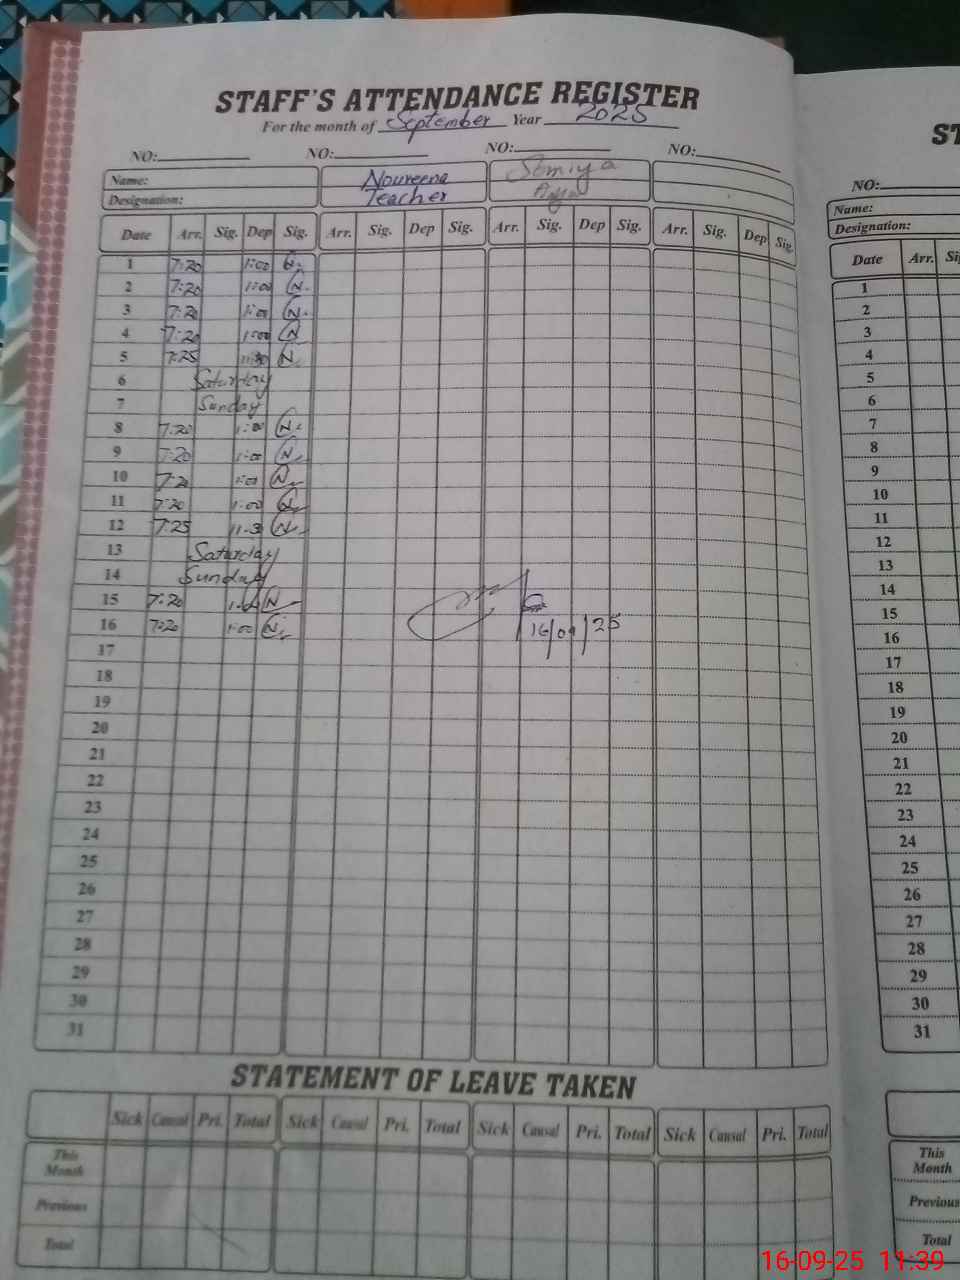 STAFF'S ATTENDANCE REGISTER
For the month of September Year 2025
NO: NO: NO: NO:
Name: Noureena Somiya
Designation: Teacher
Date Arr. Sig. Dep Sig. Arr. Sig. Dep Sig. Arr. Sig. Dep Sig. Arr. Sig. Dep Sig.
1 7:20 1:00 N
2 7:20 1:00 N
3 7:20 1:00 N
4 7:20 1:00 N
5 7:25 11:30 N
6 Saturday
7 Sunday
8 7:20 1:00 N
9 7:20 1:00 N
10 7:20 1:00 N
11 7:20 1:00 N
12 7:25 11:30 N
13 Saturday
14 Sunday
15 7:20 1:00 N
16 7:20 1:00 N 16/09/25
17
18
19
20
21
22
23
24
25
26
27
28
29
30
31
STATEMENT OF LEAVE TAKEN
Sick Causal Pri. Total Sick Causal Pri. Total Sick Causal Pri. Total Sick Causal Pri. Total
This Month
Previous
Total
ST
NO:
Name:
Designation:
Date Arr. Si
1
2
3
4
5
6
7
8
9
10
11
12
13
14
15
16
17
18
19
20
21
22
23
24
25
26
27
28
29
30
31
This Month
Previous
Total
16-09-25 11:39